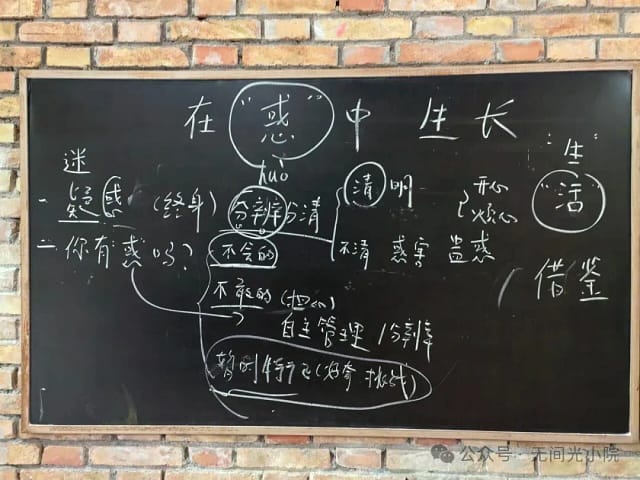 在"惑"中 生长
huò
迷
一 疑惑 (终身) 分辨 分清 清 明 开心 烦心 "生"
"活"
二 你有"惑"吗? 不会的 不清 惑害 蛊惑 借鉴
不敢的 (担心)
自主管理 分辨
暂时
公众号·无间光小院